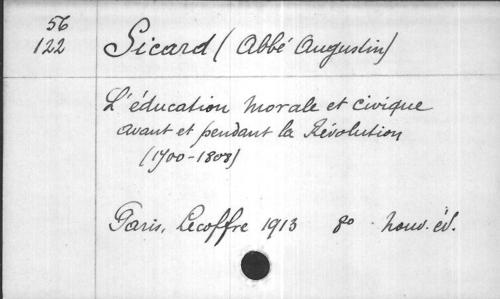 56
122
Sicard (Abbé Augustin)
L'éducation morale et civique
avant et pendant la Révolution
(1700-1808)
Paris, Lecoffre 1913 8o nouv. éd.